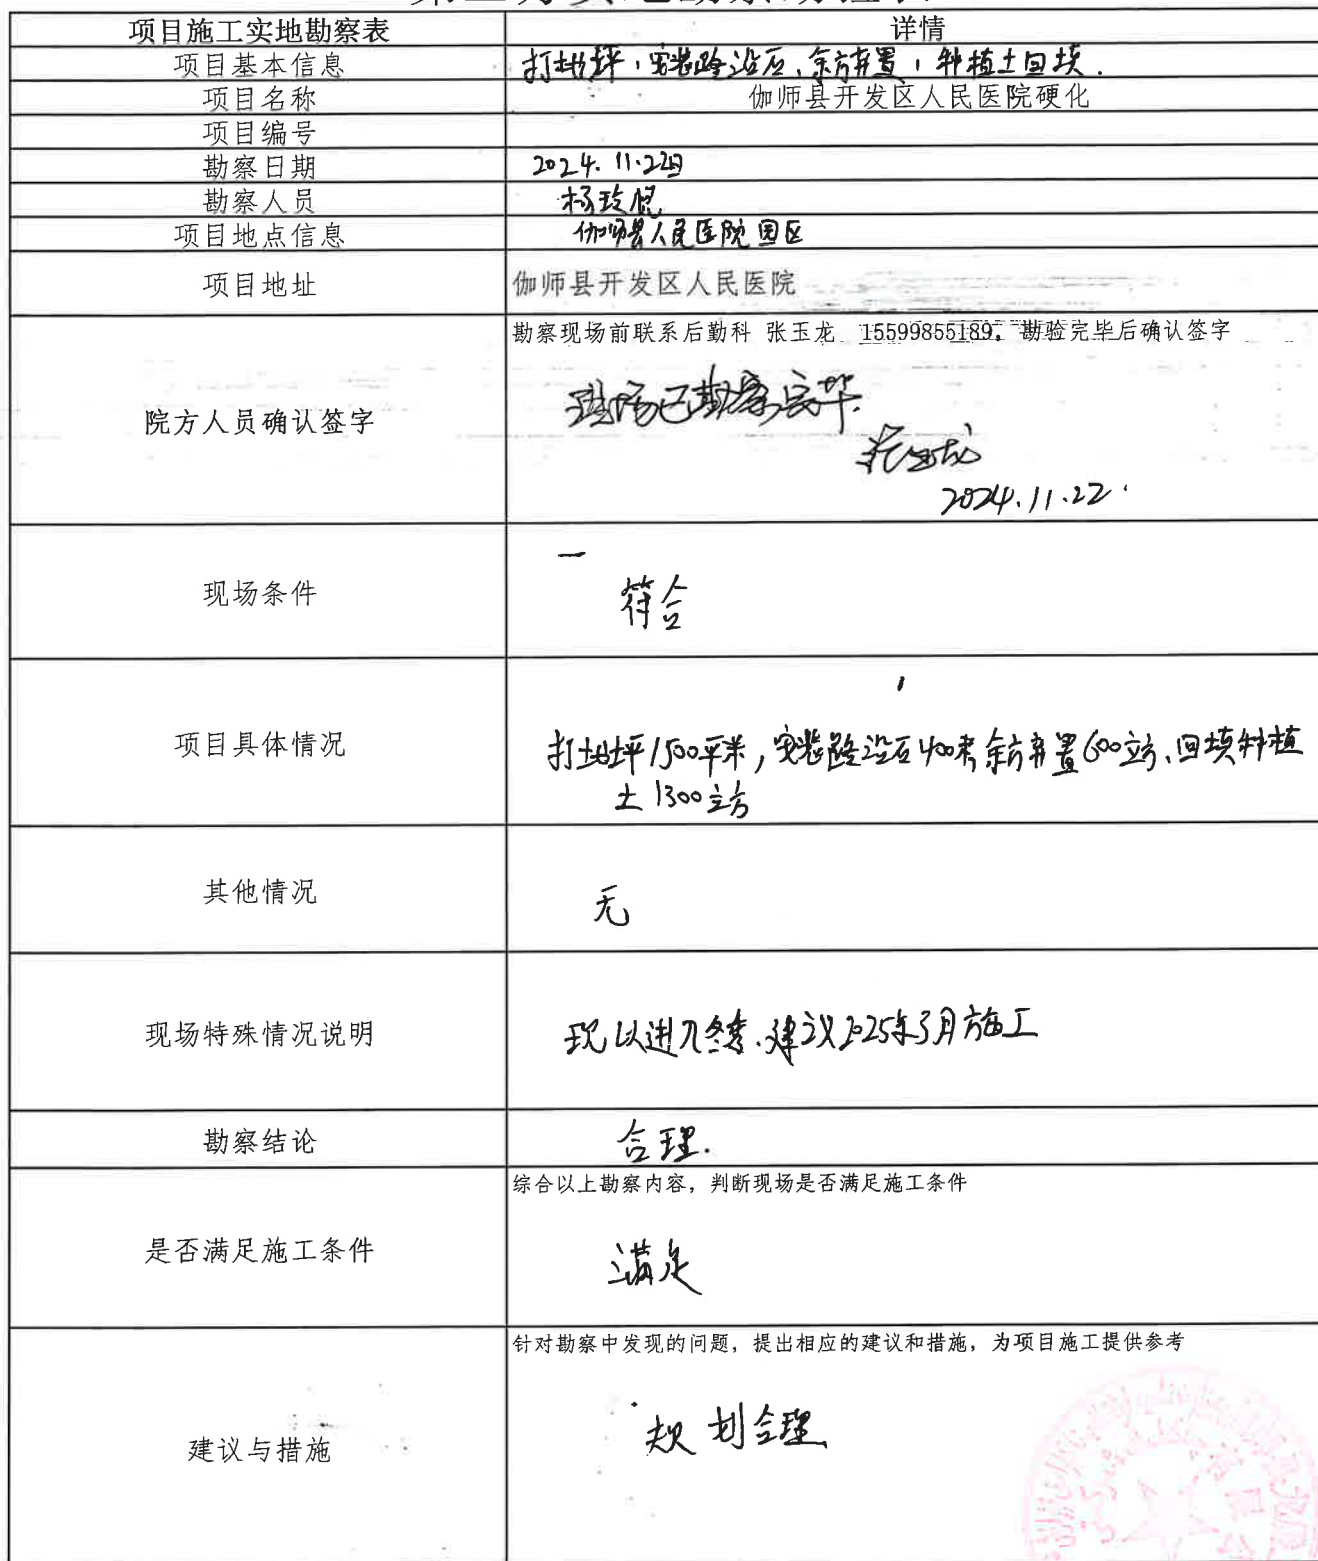 项目施工实地勘察表 详情
项目基本信息 打地坪，安装路沿石、余方弃置，种植土回填.
项目名称 伽师县开发区人民医院硬化
项目编号
勘察日期 2024.11.22日
勘察人员 杨玲
项目地点信息 伽师县人民医院园区
项目地址 伽师县开发区人民医院
勘察现场前联系后勤科 张玉龙 15599855189，勘验完毕后确认签字
院方人员确认签字 现场已勘察完毕.
张玉龙
2024.11.22.
现场条件 符合
项目具体情况 打地坪1500平米，安装路沿石400米 余方弃置600立方、回填种植
土1300立方
其他情况 无
现场特殊情况说明 现以进入冬季.建议2025年3月施工
勘察结论 合理.
综合以上勘察内容，判断现场是否满足施工条件
是否满足施工条件 满足
针对勘察中发现的问题，提出相应的建议和措施，为项目施工提供参考
建议与措施 规划合理